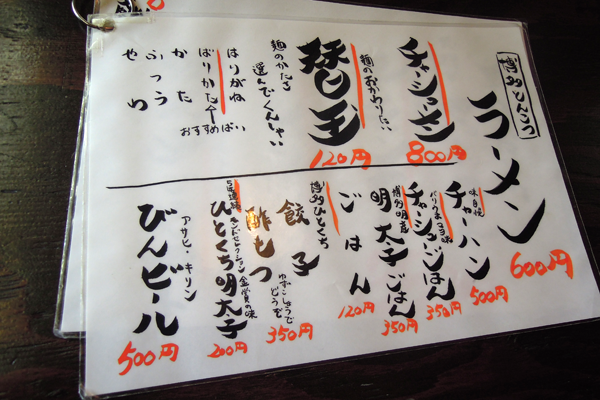 博多とんこつ
ラーメン
600円
チャーシューメン
800円
麺のおかわりたい
替玉
120円
麺のかたさ
選んでくんしゃい
はりがね
ばりかた
おすすめばい
かた
ふつう
やわ
味自慢
チャーハン
500円
バリうまヨ味
チャーシューごはん
350円
博多名産
明太子ごはん
350円
ごはん
120円
博多ひとくち
餃子
ゆずこしょうでどうぞ
酢もつ
350円
モンドセレクション金賞の味
ひとくち明太子
200円
アサヒ・キリン
びんビール
500円